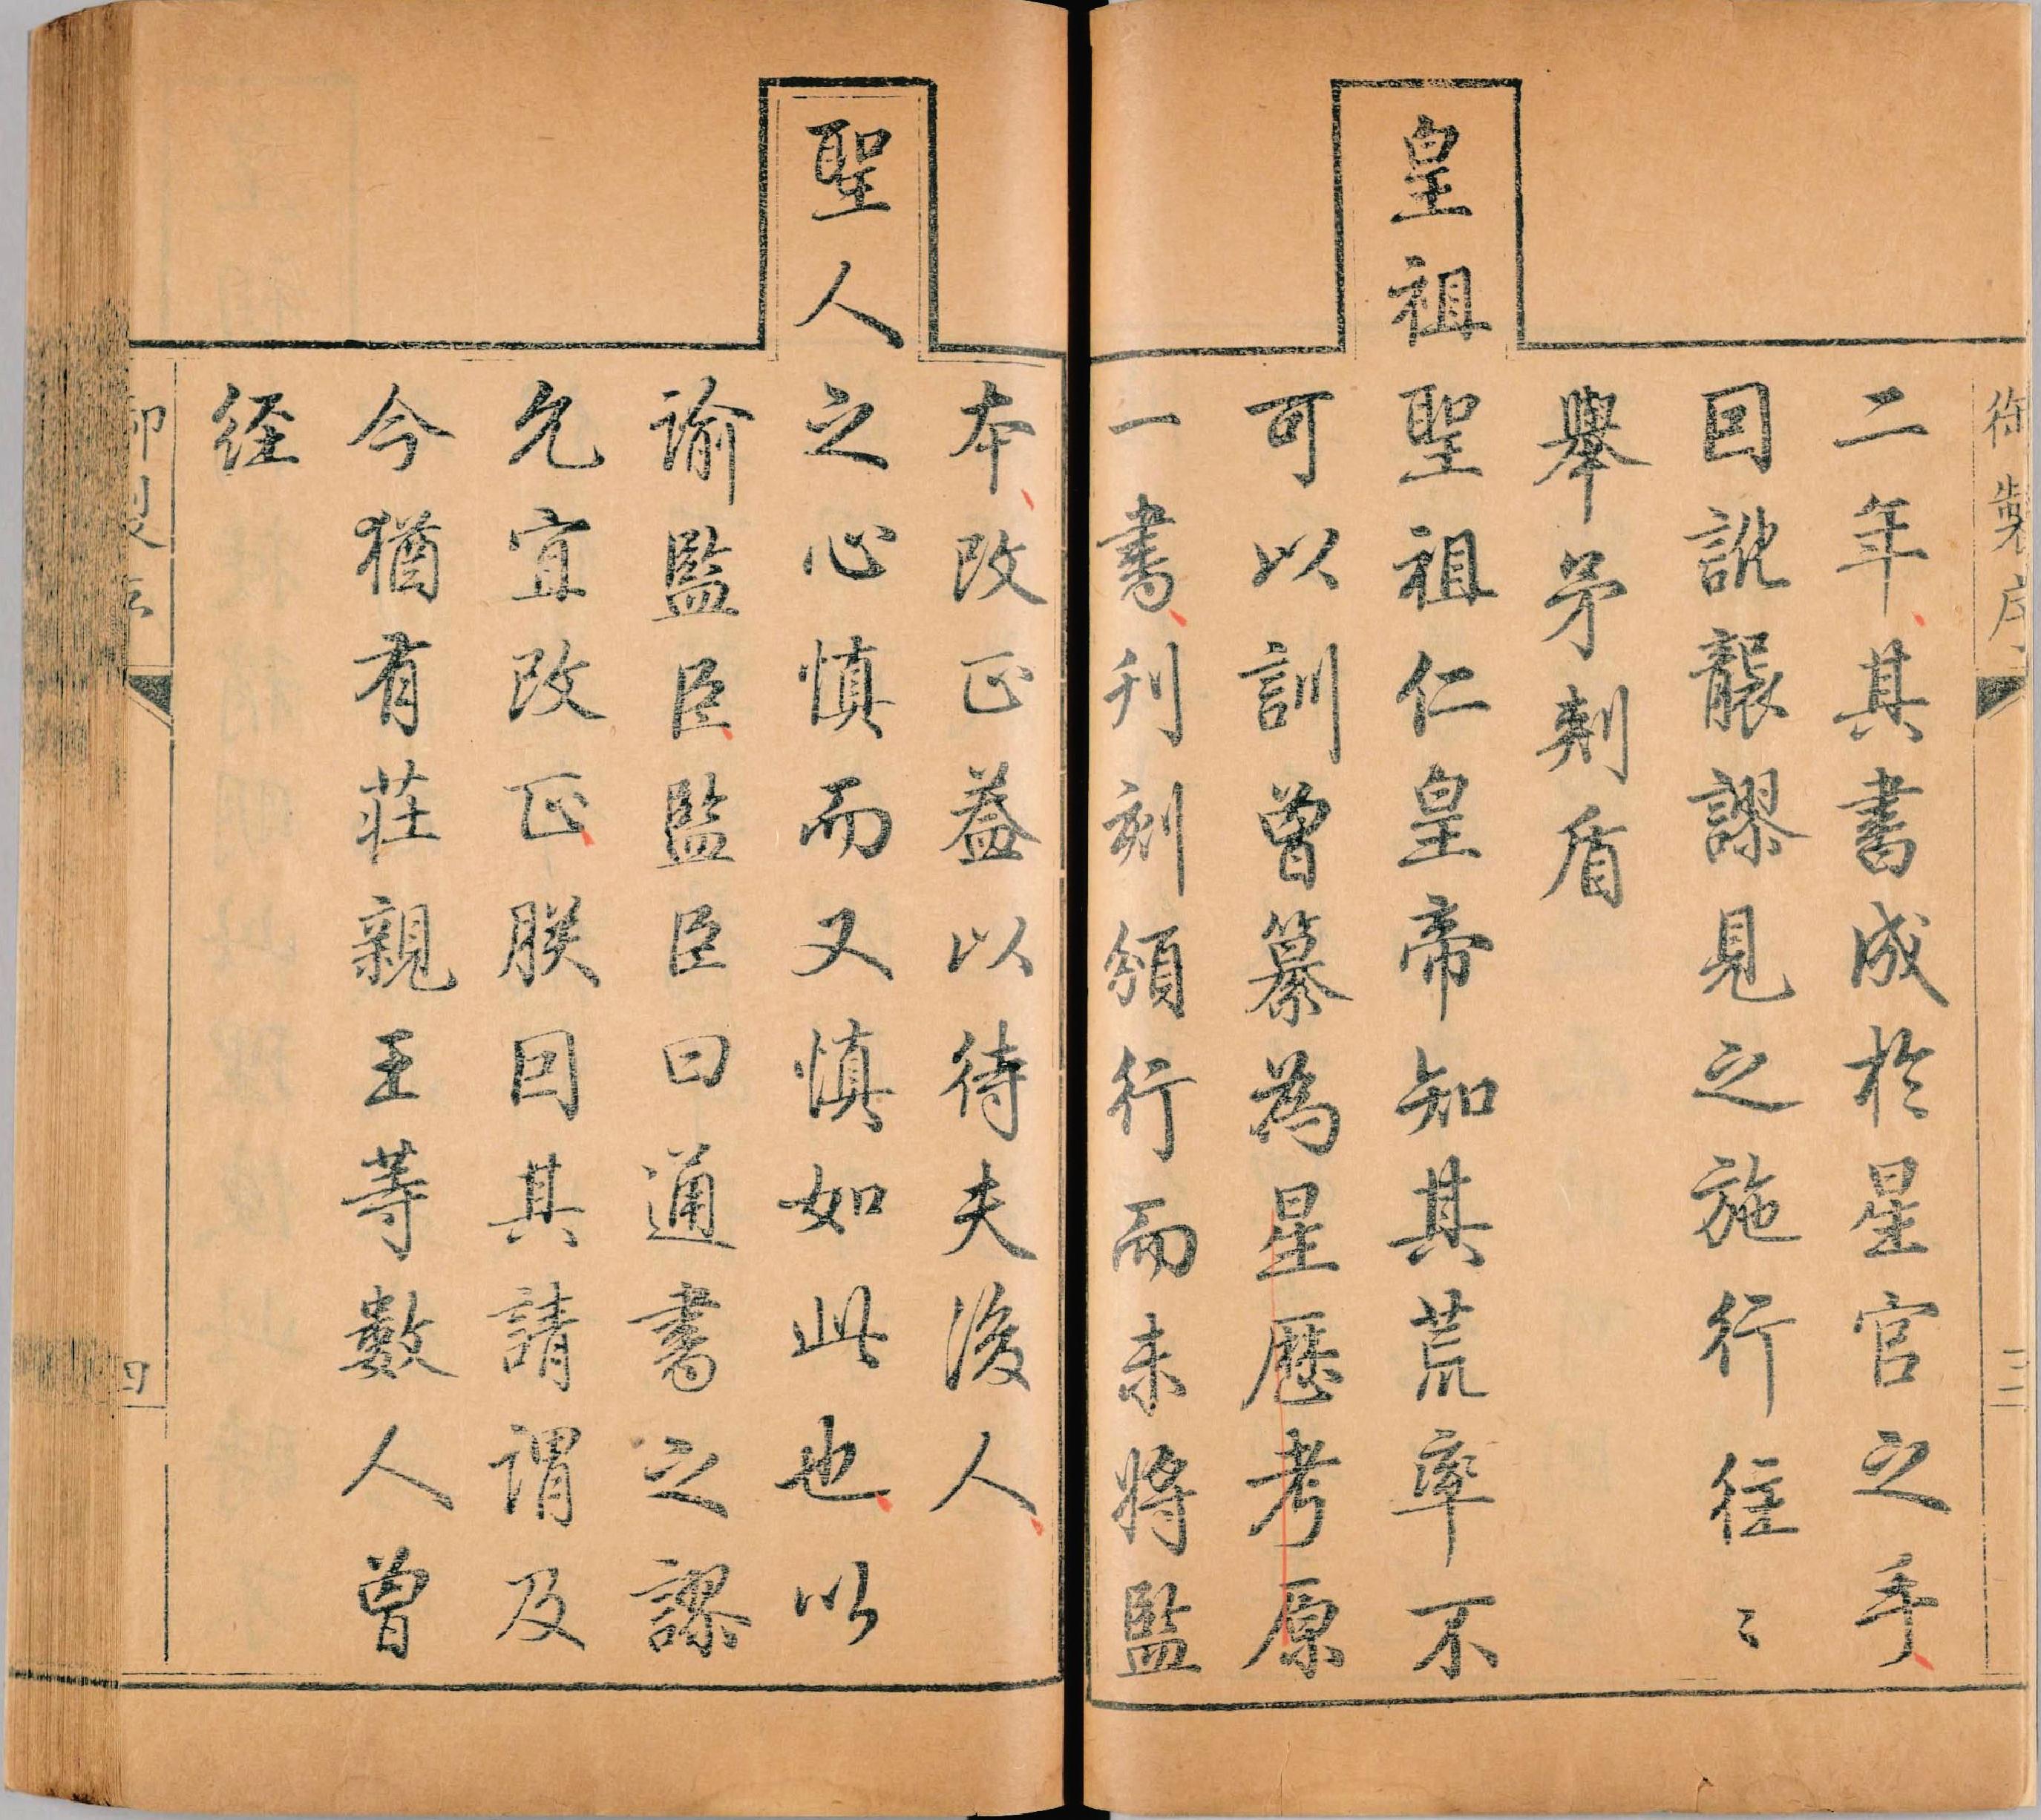 御製序
三
二年其書成於星官之手
因訛襲謬見之施行往〻
舉矛刺盾
皇祖聖祖仁皇帝知其荒率不
可以訓曾纂為星歷考原
一書刊刻頒行而未將監
本改正蓋以待夫後人
聖人之心慎而又慎如此也以
諭監臣監臣曰通書之謬
允宜改正朕因其請謂及
今猶有莊親王等數人曾
経
御製序
四